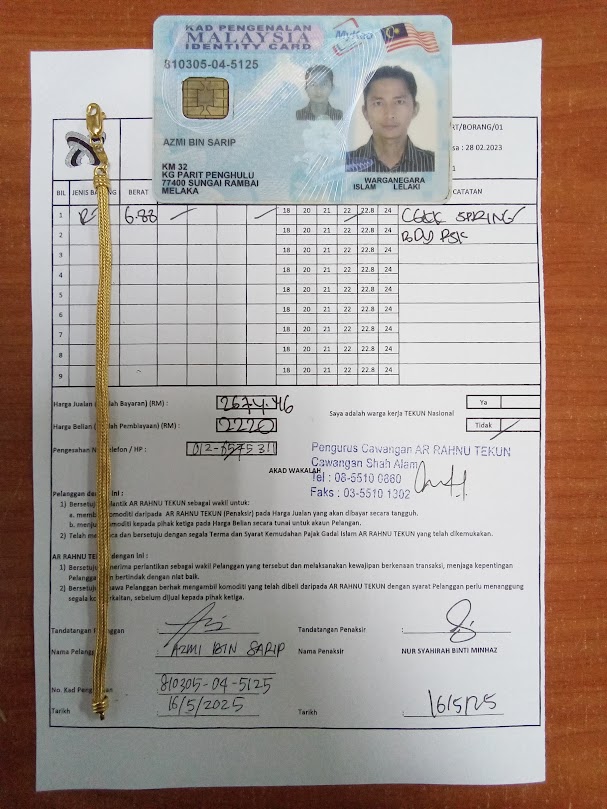 KAD PENGENALAN
MALAYSIA
IDENTITY CARD
MyKad
810305-04-5125
AZMI BIN SARIP
KM 32
KG PARIT PENGHULU
77400 SUNGAI RAMBAI
MELAKA
WARGANEGARA
ISLAM LELAKI
/BORANG/01
: 28 02.2023
1
BIL JENIS BERAT CATATAN
1 6.88 18 20 21 22 22.8 24 SPRING
2 18 20 21 22 22.8 24
3 18 20 21 22 22.8 24
4 18 20 21 22 22.8 24
5 18 20 21 22 22.8 24
6 18 20 21 22 22.8 24
7 18 20 21 22 22.8 24
8 18 20 21 22 22.8 24
9 18 20 21 22 22.8 24
Harga Jualan Bayaran) (RM) : 2674.46 Ya
Saya adalah warga kerja TEKUN Nasional
Harga Belian Pembiayaan) (RM) : 2220 Tidak
Pengesahan / HP : 012-6575311
Pengurus Cawangan AR RAHNU TEKUN
Cawangan Shah Alam
AKAD WAKALAH
Tel : 08-5510 0880
Faks : 03-5510 1302
Pelanggan ini :
1) Bersetuju AR RAHNU TEKUN sebagai wakil untuk:
a. komoditi daripada AR RAHNU TEKUN (Penaksir) pada Harga Jualan yang akan dibayar secara tangguh.
b. komoditi kepada pihak ketiga pada Harga Belian secara tunai untuk akaun Pelanggan.
2) Telah dan bersetuju dengan segala Terma dan Syarat Kemudahan Pajak Gadai Islam AR RAHNU TEKUN yang telah dikemukakan.
AR RAHNU TEKUN dengan ini :
1) Bersetuju perlantikan sebagai wakil Pelanggan yang tersebut dan melaksanakan kewajipan berkenaan transaksi, menjaga kepentingan
Pelanggan bertindak dengan niat baik.
2) Bersetuju Pelanggan berhak mengambil komoditi yang telah dibeli daripada AR RAHNU TEKUN dengan syarat Pelanggan perlu menanggung
segala berkaitan, sebelum dijual kepada pihak ketiga.
Tandatangan Pelanggan : Tandatangan Penaksir :
Nama Pelanggan : AZMI BIN SARIP Nama Penaksir : NUR SYAHIRAH BINTI MINHAZ
No. Kad : 810305-04-5125
Tarikh : 16/5/2025 Tarikh : 16/5/25